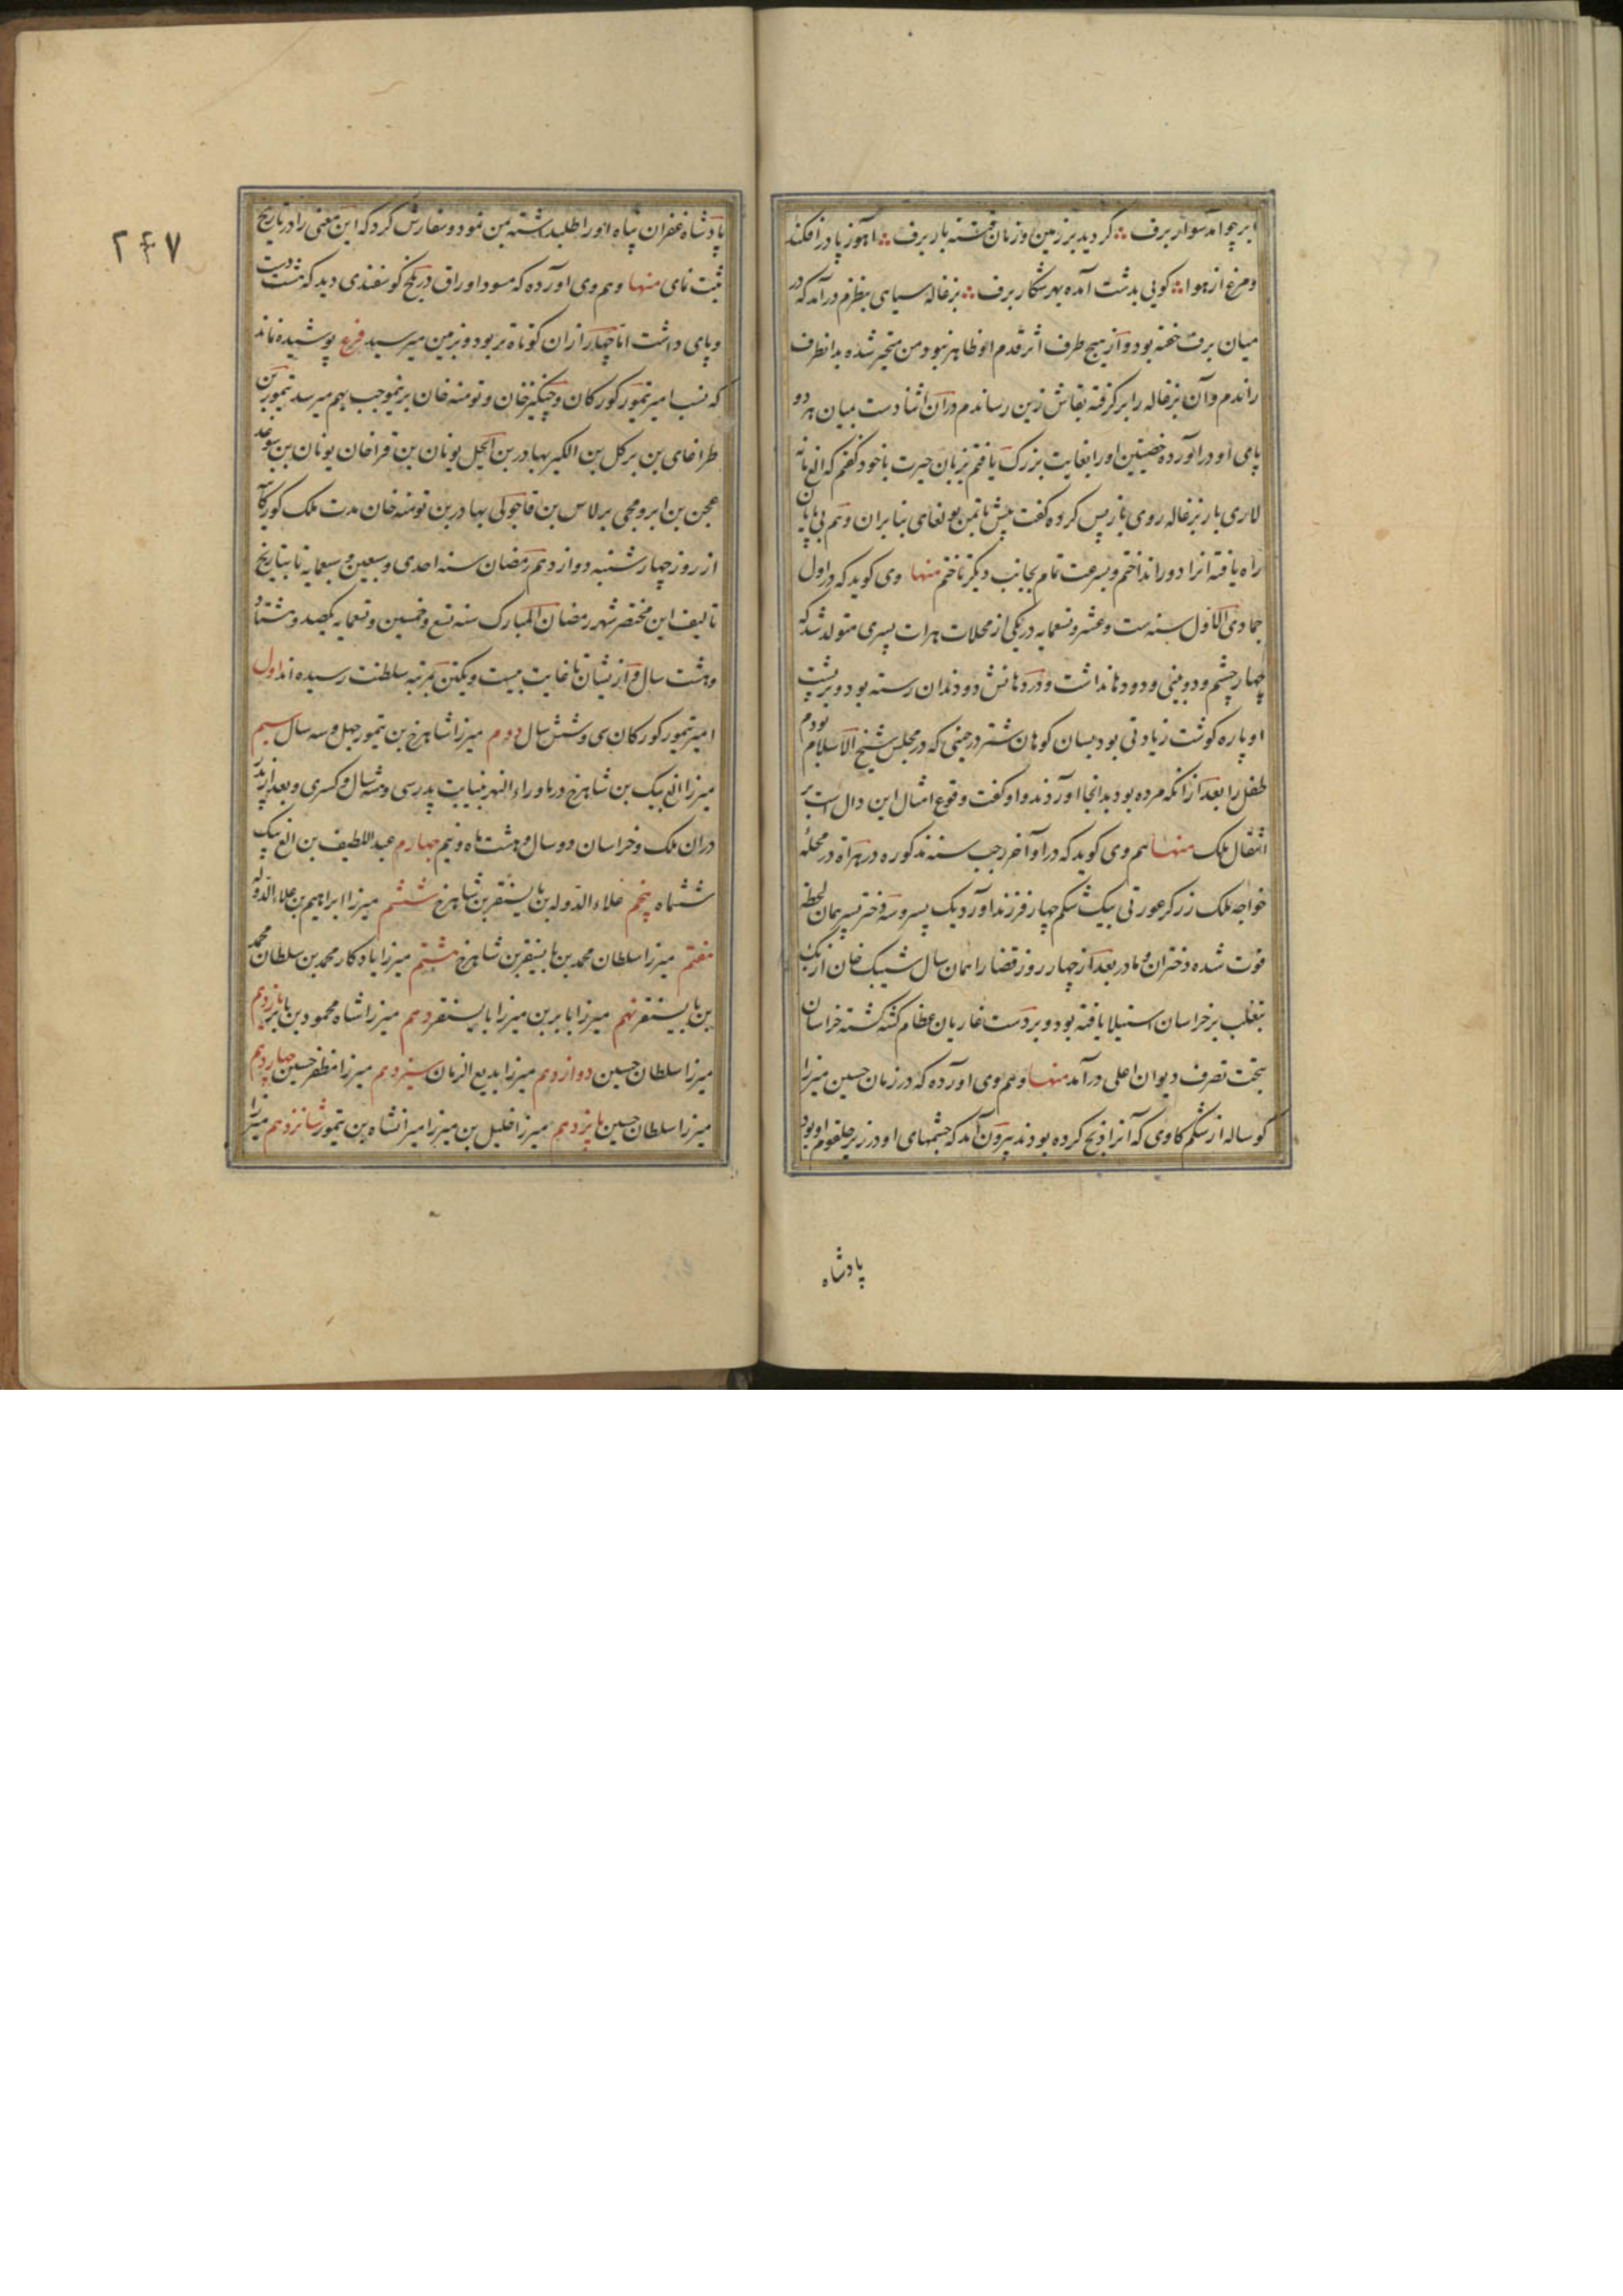 ابر چو آمد سوار برف ؞ گردید بر زمین و زمان فتنه بار برف ؞ آهو ز پا درافکند
و مرغ از هوا ؞ گویی بدشت آمده بهر شکار برف ؞ بزغاله سیاهی بنظرم درآمد که در
میان برف خفته بود و از هیچ طرف اثر قدم او ظاهر نبود من متحیر شده بدانطرف
راندم و آن بزغاله را برگرفته بقاش زین رساندم در آن اثنا دست بمیان هر دو
پای او درآورده خصیتین او را بغایت بزرگ یافتم بزبان حیرت با خود گفتم که
لاری بار بزغاله روی باز پس کرده گفت بنابران وهم بی پایان
راه یافته آنرا دور انداختم و بسرعت تمام بجانب دیگر تاختم منها وی گوید که در اول
جمادی الاول سنه ست و عشر و تسعمایه در یکی از محلات هرات پسری متولد شد که
چهار چشم و دو بینی و دو دهان داشت و در دهانش دو دندان رسته بود و بر پشت
او پاره گوشت زیادتی بود بسان کوهان شتر در حینی که در مجلس شیخ الاسلام بودم
طفل را بعد از آنکه مرده بود بدانجا آوردند و او گفت وقوع امثال این دال است بر
انتقال ملک منها هم وی گوید که در اواخر رجب سنه مذکوره در هراة در محله
خواجه ملک زرگر عورتی بیک شکم چهار فرزند آورد یک پسر و سه دختر پسر همان لحظه
فوت شده دختران و مادر بعد از چهار روز قضا را همان سال شیبک خان ازبک
بتغلب بر خراسان استیلا یافته بود و بر دست غازیان عظام کشته گشته خراسان
بتحت تصرف دیوان اعلی درآمد منها و هم وی آورده که در زمان حسین میرزا
گوساله از شکم گاوی که آنرا ذبح کرده بودند بیرون آمد که چشمهای او در زیر حلقوم او بود
پادشاه
۲۴۷
پادشاه غفران پناه او را طلبداشته بمن نمود و سفارش کرد که این معنی را در تاریخ
ثبت نمای منها و هم وی آورده که مسود اوراق در بلخ گوسفندی دید که هشت دست
و پای داشت اما چهار از آن کوتاه تر بود و بزمین میرسید فرع پوشیده نماند
که نسب امیر تیمور گورکان و چنگیز خان و تومنه خان برینموجب بهم میرسد تیمور بن
طراغای بن برکل بن الکیر بهادر بن ایجل نویان بن قراخار نویان بن سوغد
عجن بن ایرومجی برلاس بن قاجولی بهادر بن تومنه خان مدت ملک
از روز چهارشنبه دوازدهم رمضان سنه احدی و سبعین و سبعمایه تا بتاریخ
تالیف این مختصر شهر رمضان المبارک سنه تسع و خمسین و تسعمایه یکصد و هشتاد
و هشت سال و از ایشان تا غایت بیست و یکتن بمرتبه سلطنت رسیده اند اول
امیر تیمور گورکان سی و شش سال دوم میرزا شاهرخ بن تیمور چهل و سه سال سیم
میرزا الغ بیک بن شاهرخ در ماوراء النهر بنیابت پدر سی و سال و کسری و بعد از پدر
در آن ملک و خراسان دو سال و هشت ماه و نیم چهارم عبد اللطیف بن الغ بیک
ششماه پنجم علاء الدوله بن بایسنقر بن شاهرخ ششم میرزا ابراهیم بن علاء الدوله
هفتم میرزا سلطان محمد بن بایسنقر بن شاهرخ هشتم میرزا یادکار محمد بن سلطان محمد
بن بایسنقر نهم میرزا بابر بن میرزا بایسنقر دهم میرزا شاه محمود بن بابر یازدهم
میرزا سلطان حسین دوازدهم میرزا بدیع الزمان سیزدهم میرزا مظفر حسین چهاردهم
میرزا سلطان حسین پانزدهم میرزا خلیل بن میرزا میرانشاه بن تیمور شانزدهم میرزا